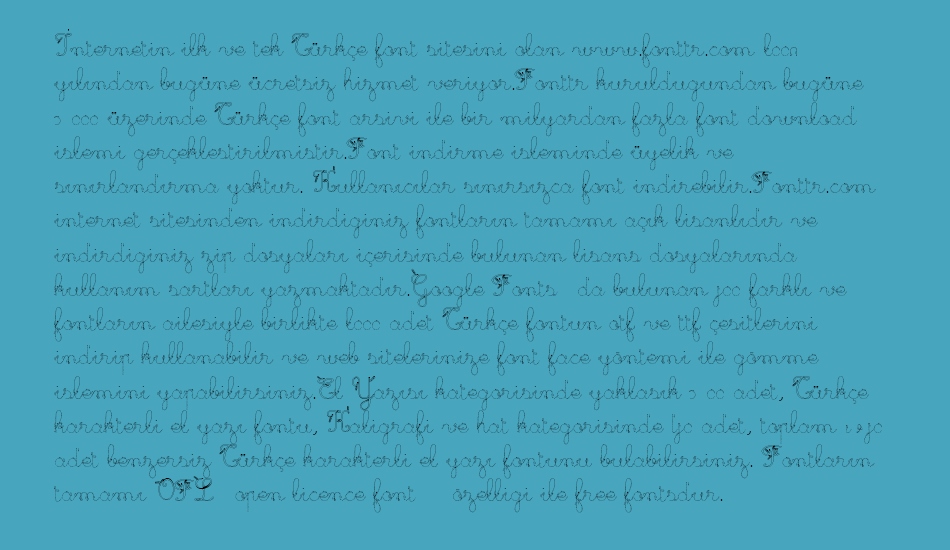 İnternetin ilk ve tek Türkçe font sitesini olan www.fonttr.com
yılından bugüne ücretsiz hizmet veriyor.Fonttr kuruldugundan bugüne
üzerinde Türkçe font arsivi ile bir milyardan fazla font download
islemi gerçeklestirilmistir.Font indirme isleminde üyelik ve
sınırlandırma yoktur. Kullanıcılar sınırsızca font indirebilir.Fonttr.com
internet sitesinden indirdiginiz fontların tamamı açık lisanlıdır ve
indirdiginiz zip dosyaları içerisinde bulunan lisans dosyalarında
kullanım sartları yazmaktadır.Google Fonts da bulunan farklı ve
fontların ailesiyle birlikte adet Türkçe fontun otf ve ttf çesitlerini
indirip kullanabilir ve web sitelerinize font face yöntemi ile gömme
islemini yapabilirsiniz.El Yazısı kategorisinde yaklasık adet, Türkçe
karakterli el yazı fontu, Kaligrafi ve hat kategorisinde adet, toplam
adet benzersiz Türkçe karakterli el yazı fontunu bulabilirsiniz. Fontların
tamamı OFL open licence font özelligi ile free fontsdur.